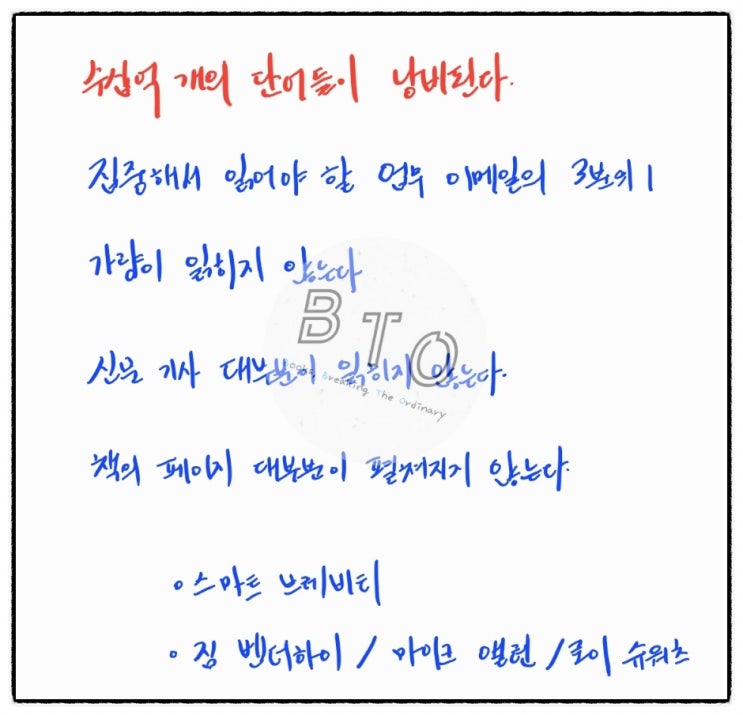 수십억 개의 단어들이 낭비된다.
집중해서 읽어야 할 업무 이메일의 3분의 1
가량이 읽히지 않는다
BTO
Books, Breaking The Ordinary
신문 기사 대부분이 읽히지 않는다.
책의 페이지 대부분이 펼쳐지지 않는다.
• 스마트 브레비티
• 짐 밴더하이 / 마이크 앨런 / 로이 슈워츠